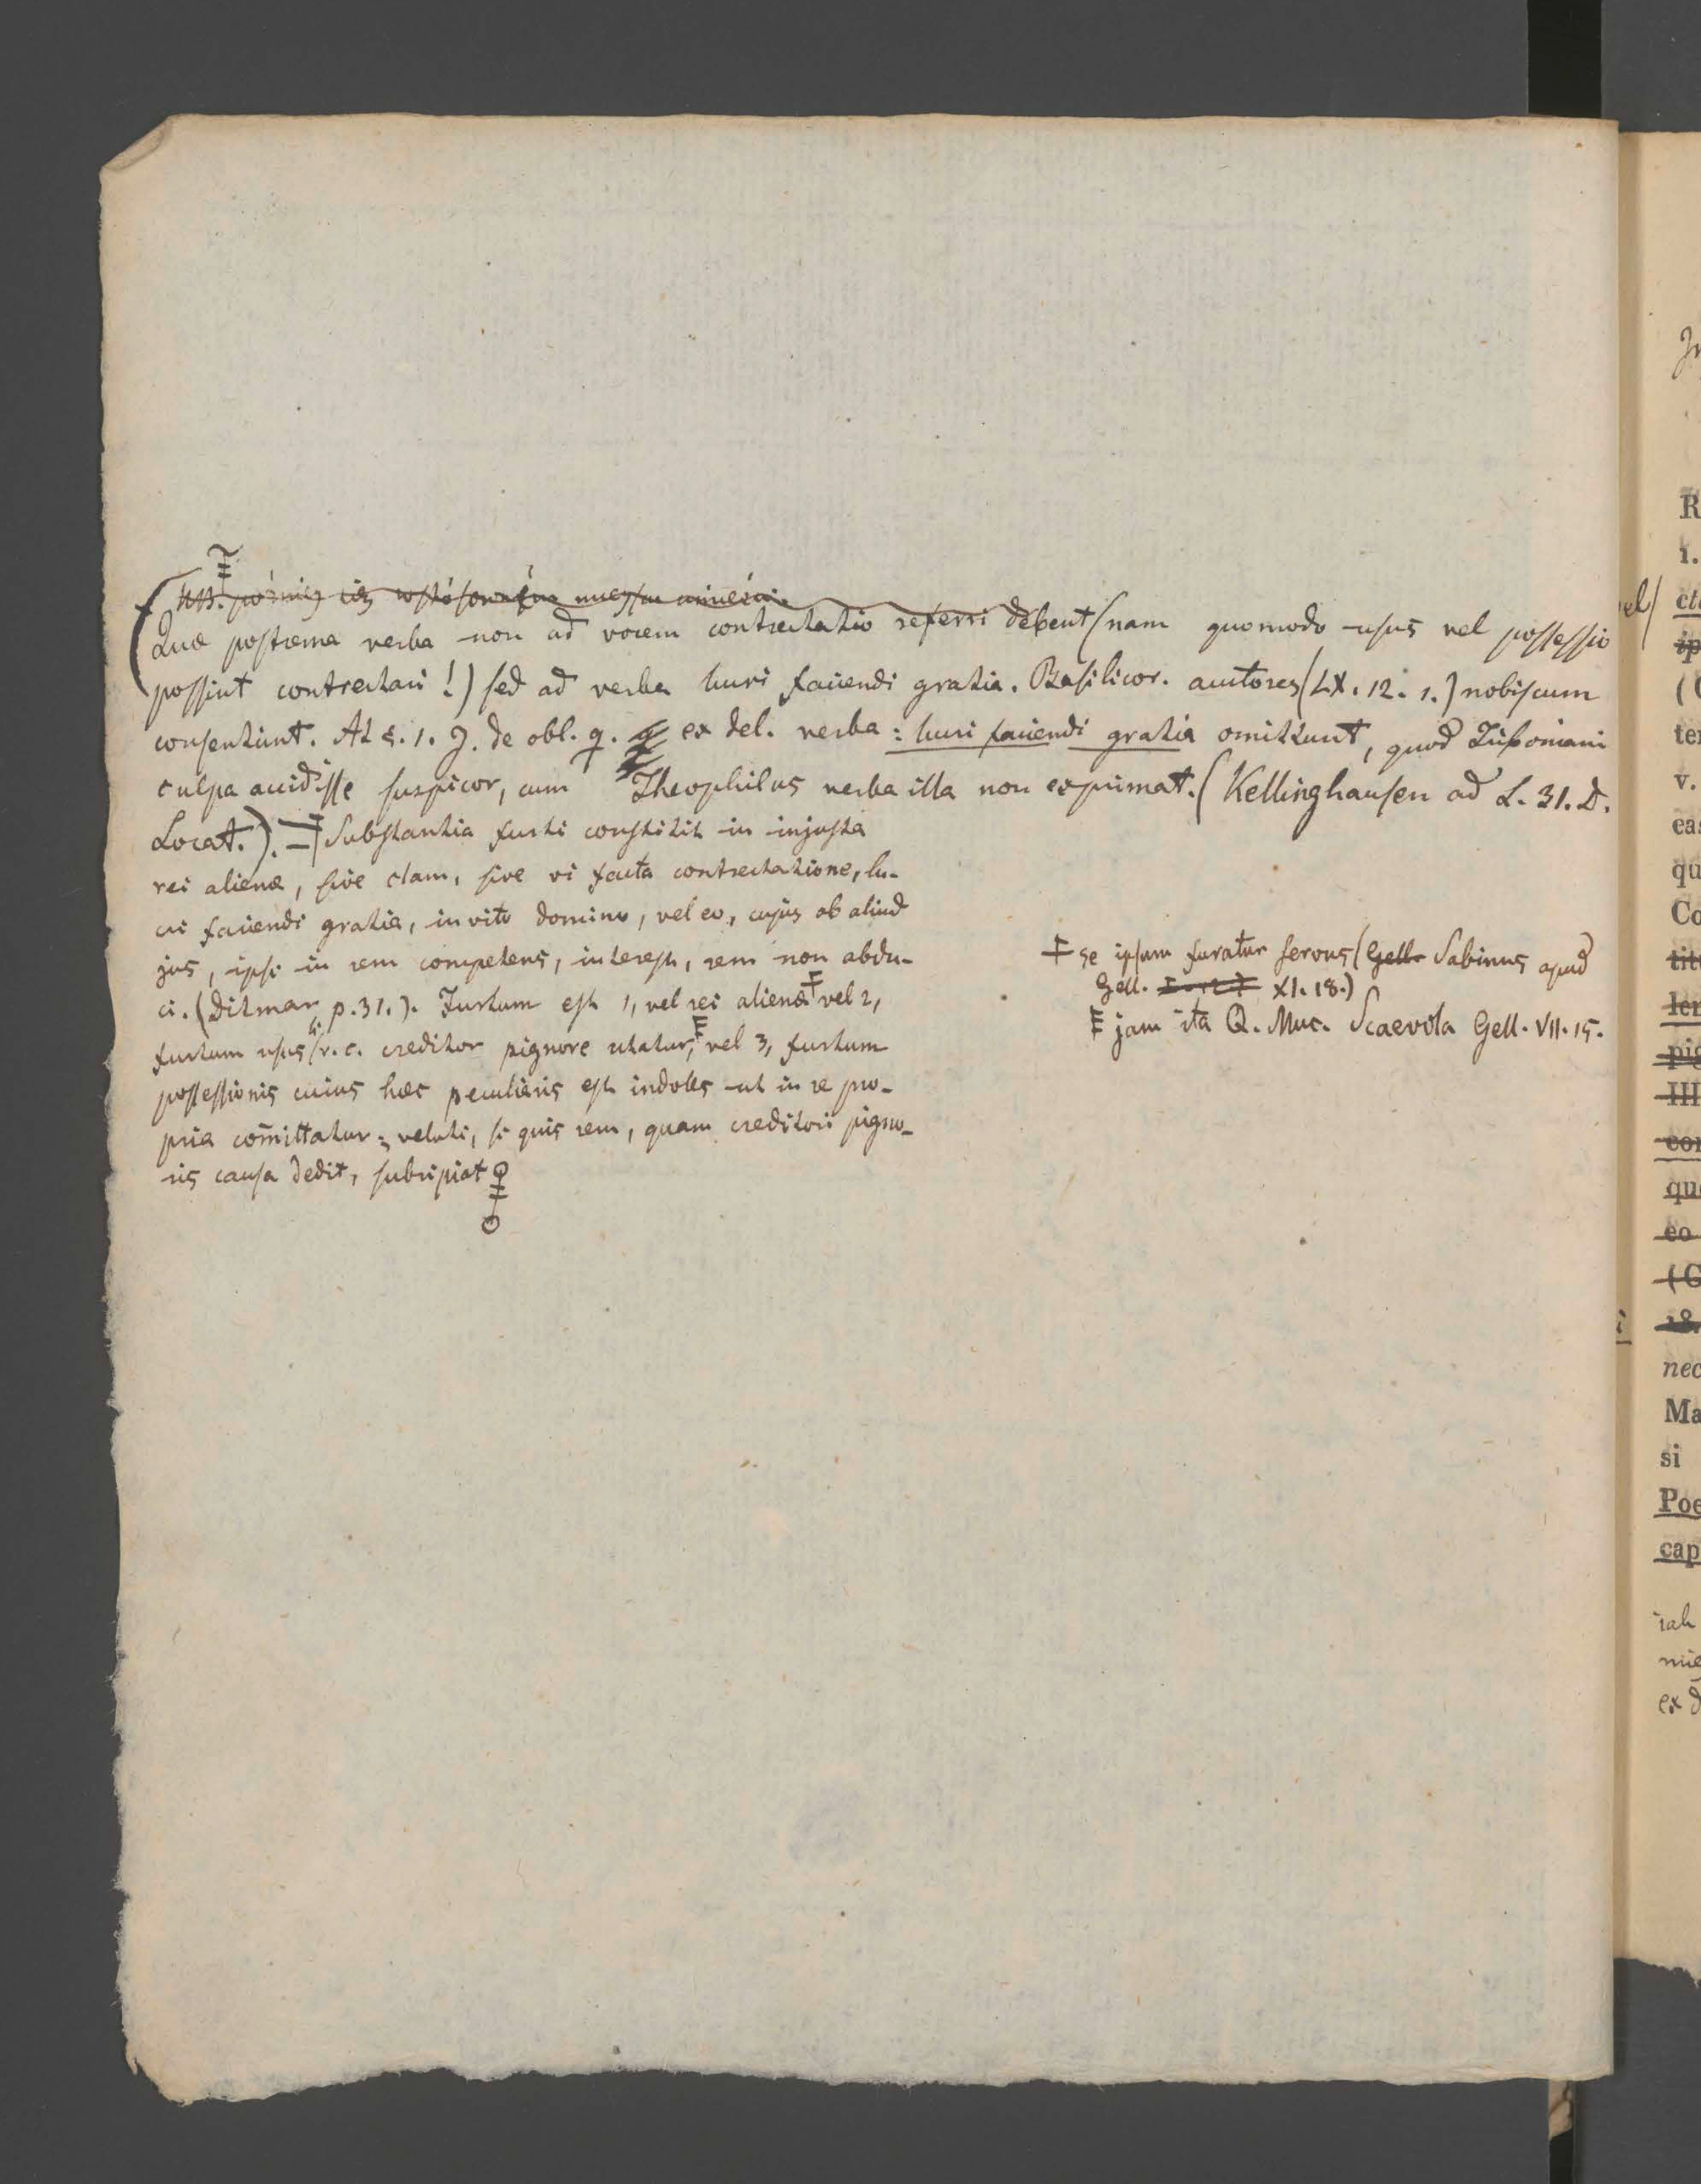 (Quae postrema verba non ad vocem contrectatio referri debent (nam quomodo usus vel possessio
possint contrectari!) sed ad verba lucri faciendi gratia. Basilicor. auctores (LX. 12. 1.) nobiscum
consentiunt. At §. 1. J. de obl. q. ex del. verba: lucri faciendi gratia omittunt, quod Triboniani
culpa accidisse suspicor, cum Theophilus verba illa non exprimat. (Kellinghausen ad L. 31. D.
Locat.). Substantia furti constitit in injusta
rei alienae, sive clam, sive vi facta contrectatione, lu-
cri faciendi gratia, invito domino, vel eo, cujus ob aliud
jus, ipsi in rem competens, interest, rem non abdu-
ci. (Ditmar p. 31.). Furtum est 1, vel rei alienae vel 2,
furtum usus v. c. creditor pignore utatur, vel 3, furtum
possessionis cuius haec peculiaris est indoles ut in re pro-
pria com̄ittatur; veluti, si quis rem, quam creditori pigno-
ris causa dedit, subripiat
se ipsum furatur servus (Gell. Sabinus apud
Gell. XI. 18.)
jam ita Q. Muc. Scaevola Gell. VII. 15.
el/
R
i.
(
ter
v.
eas
qu
Co
tit
pig
III
con
que
eo
(C
18.
nec
Ma
si
Poe
cap
ex d